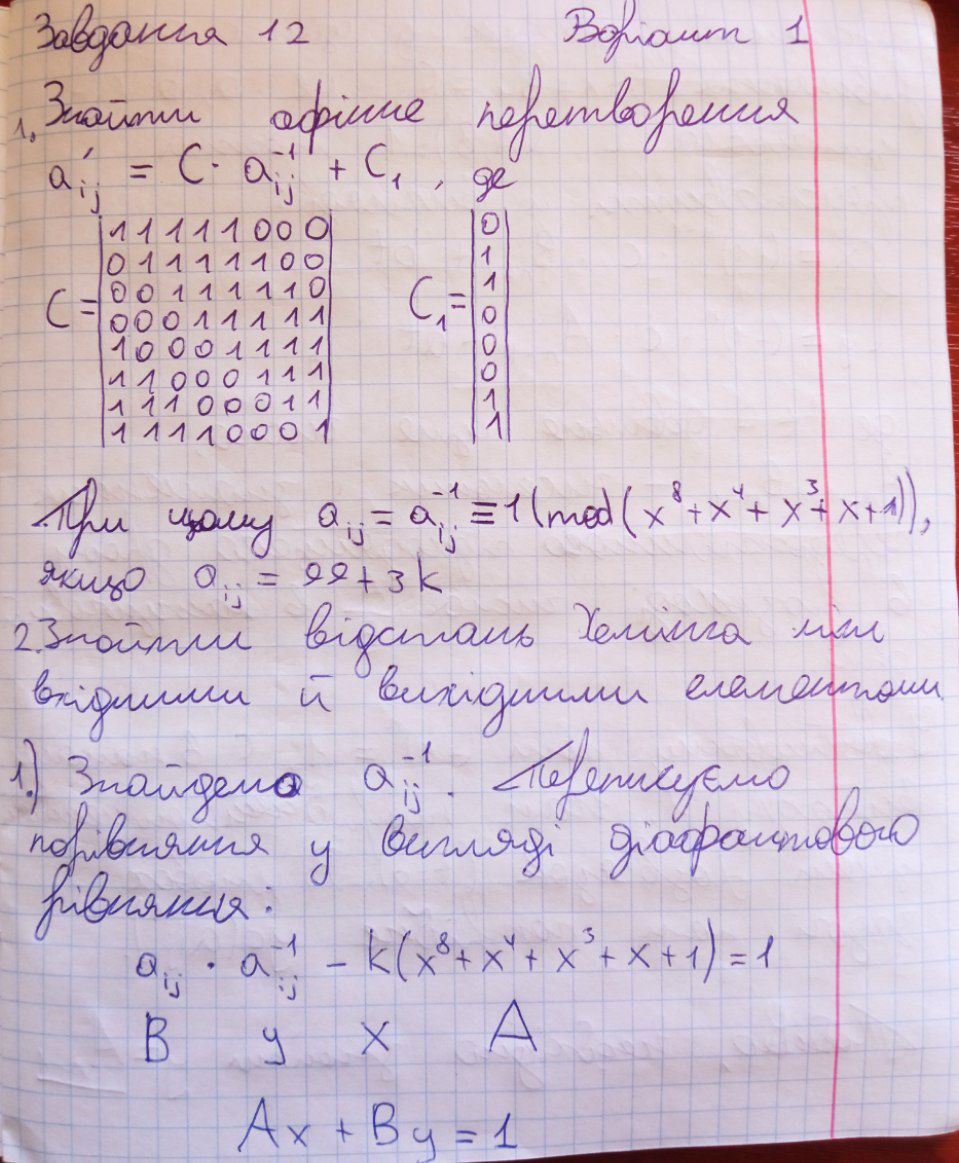 Завдання 12 Варіант 1
1. Знайти афінне перетворення
a'ij = C · aij⁻¹ + C₁, де
C = |1 1 1 1 1 0 0 0| C₁ = |0|
|0 1 1 1 1 1 0 0| |1|
|0 0 1 1 1 1 1 0| |1|
|0 0 0 1 1 1 1 1| |0|
|1 0 0 0 1 1 1 1| |0|
|1 1 0 0 0 1 1 1| |0|
|1 1 1 0 0 0 1 1| |1|
|1 1 1 1 0 0 0 1| |1|
При цьому aij = aij⁻¹ ≡ 1 (mod (x⁸ + x⁴ + x³ + x + 1)),
якщо aij = 22 + 3k
2. Знайти відстань Хемінга між
вхідними й вихідними елементами
1.) Знайдемо aij⁻¹. Перепишемо
порівняння у вигляді діафантового
рівняння:
aij · aij⁻¹ – k(x⁸ + x⁴ + x³ + x + 1) = 1
B y x A
Ax + By = 1